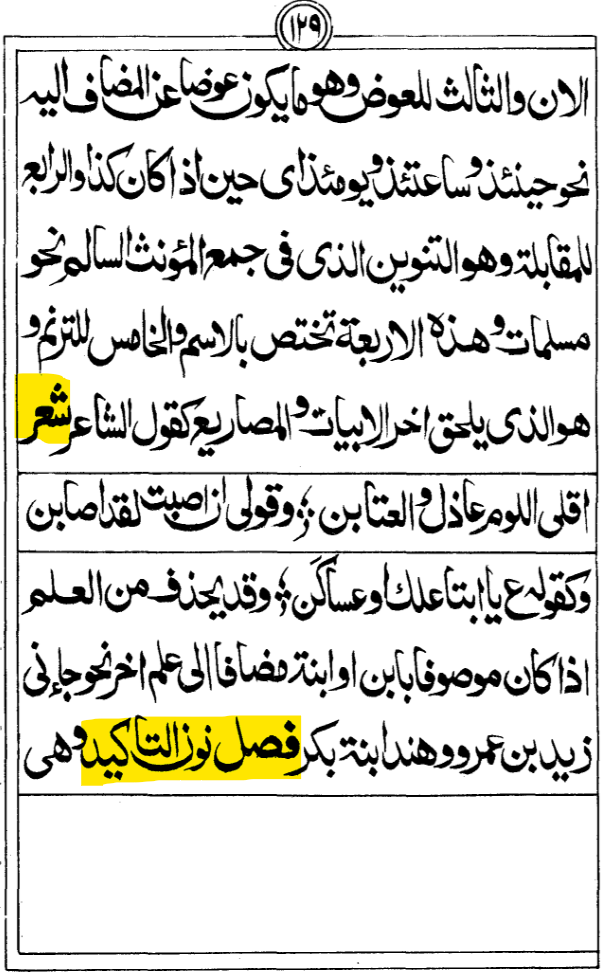 ١٢٩
الان والثالث للعوض وهو ما يكون عوضا عن المضاف اليه
نحو حينئذ وساعتئذ ويومئذ اى حين اذا كان كذا والرابع
للمقابلة وهو التنوين الذى فى جمع المؤنث السالم نحو
مسلمات وهذه الاربعة تختص بالاسم والخامس للترنم و
هو الذى يلحق اخر الابيات والمصاريع كقول الشاعر شعر
اقلى اللوم عاذل والعتابن ؛ وقولى ان اصبت لقد اصابن
وكقوله ع يا ابتا علك او عساكَن ؛ وقد يحذف من العلم
اذا كان موصوفا بابن او ابنة مضافا الى علم اخر نحو جاءنى
زيد بن عمرو وهند ابنة بكر فصل نون التاكيد وهى